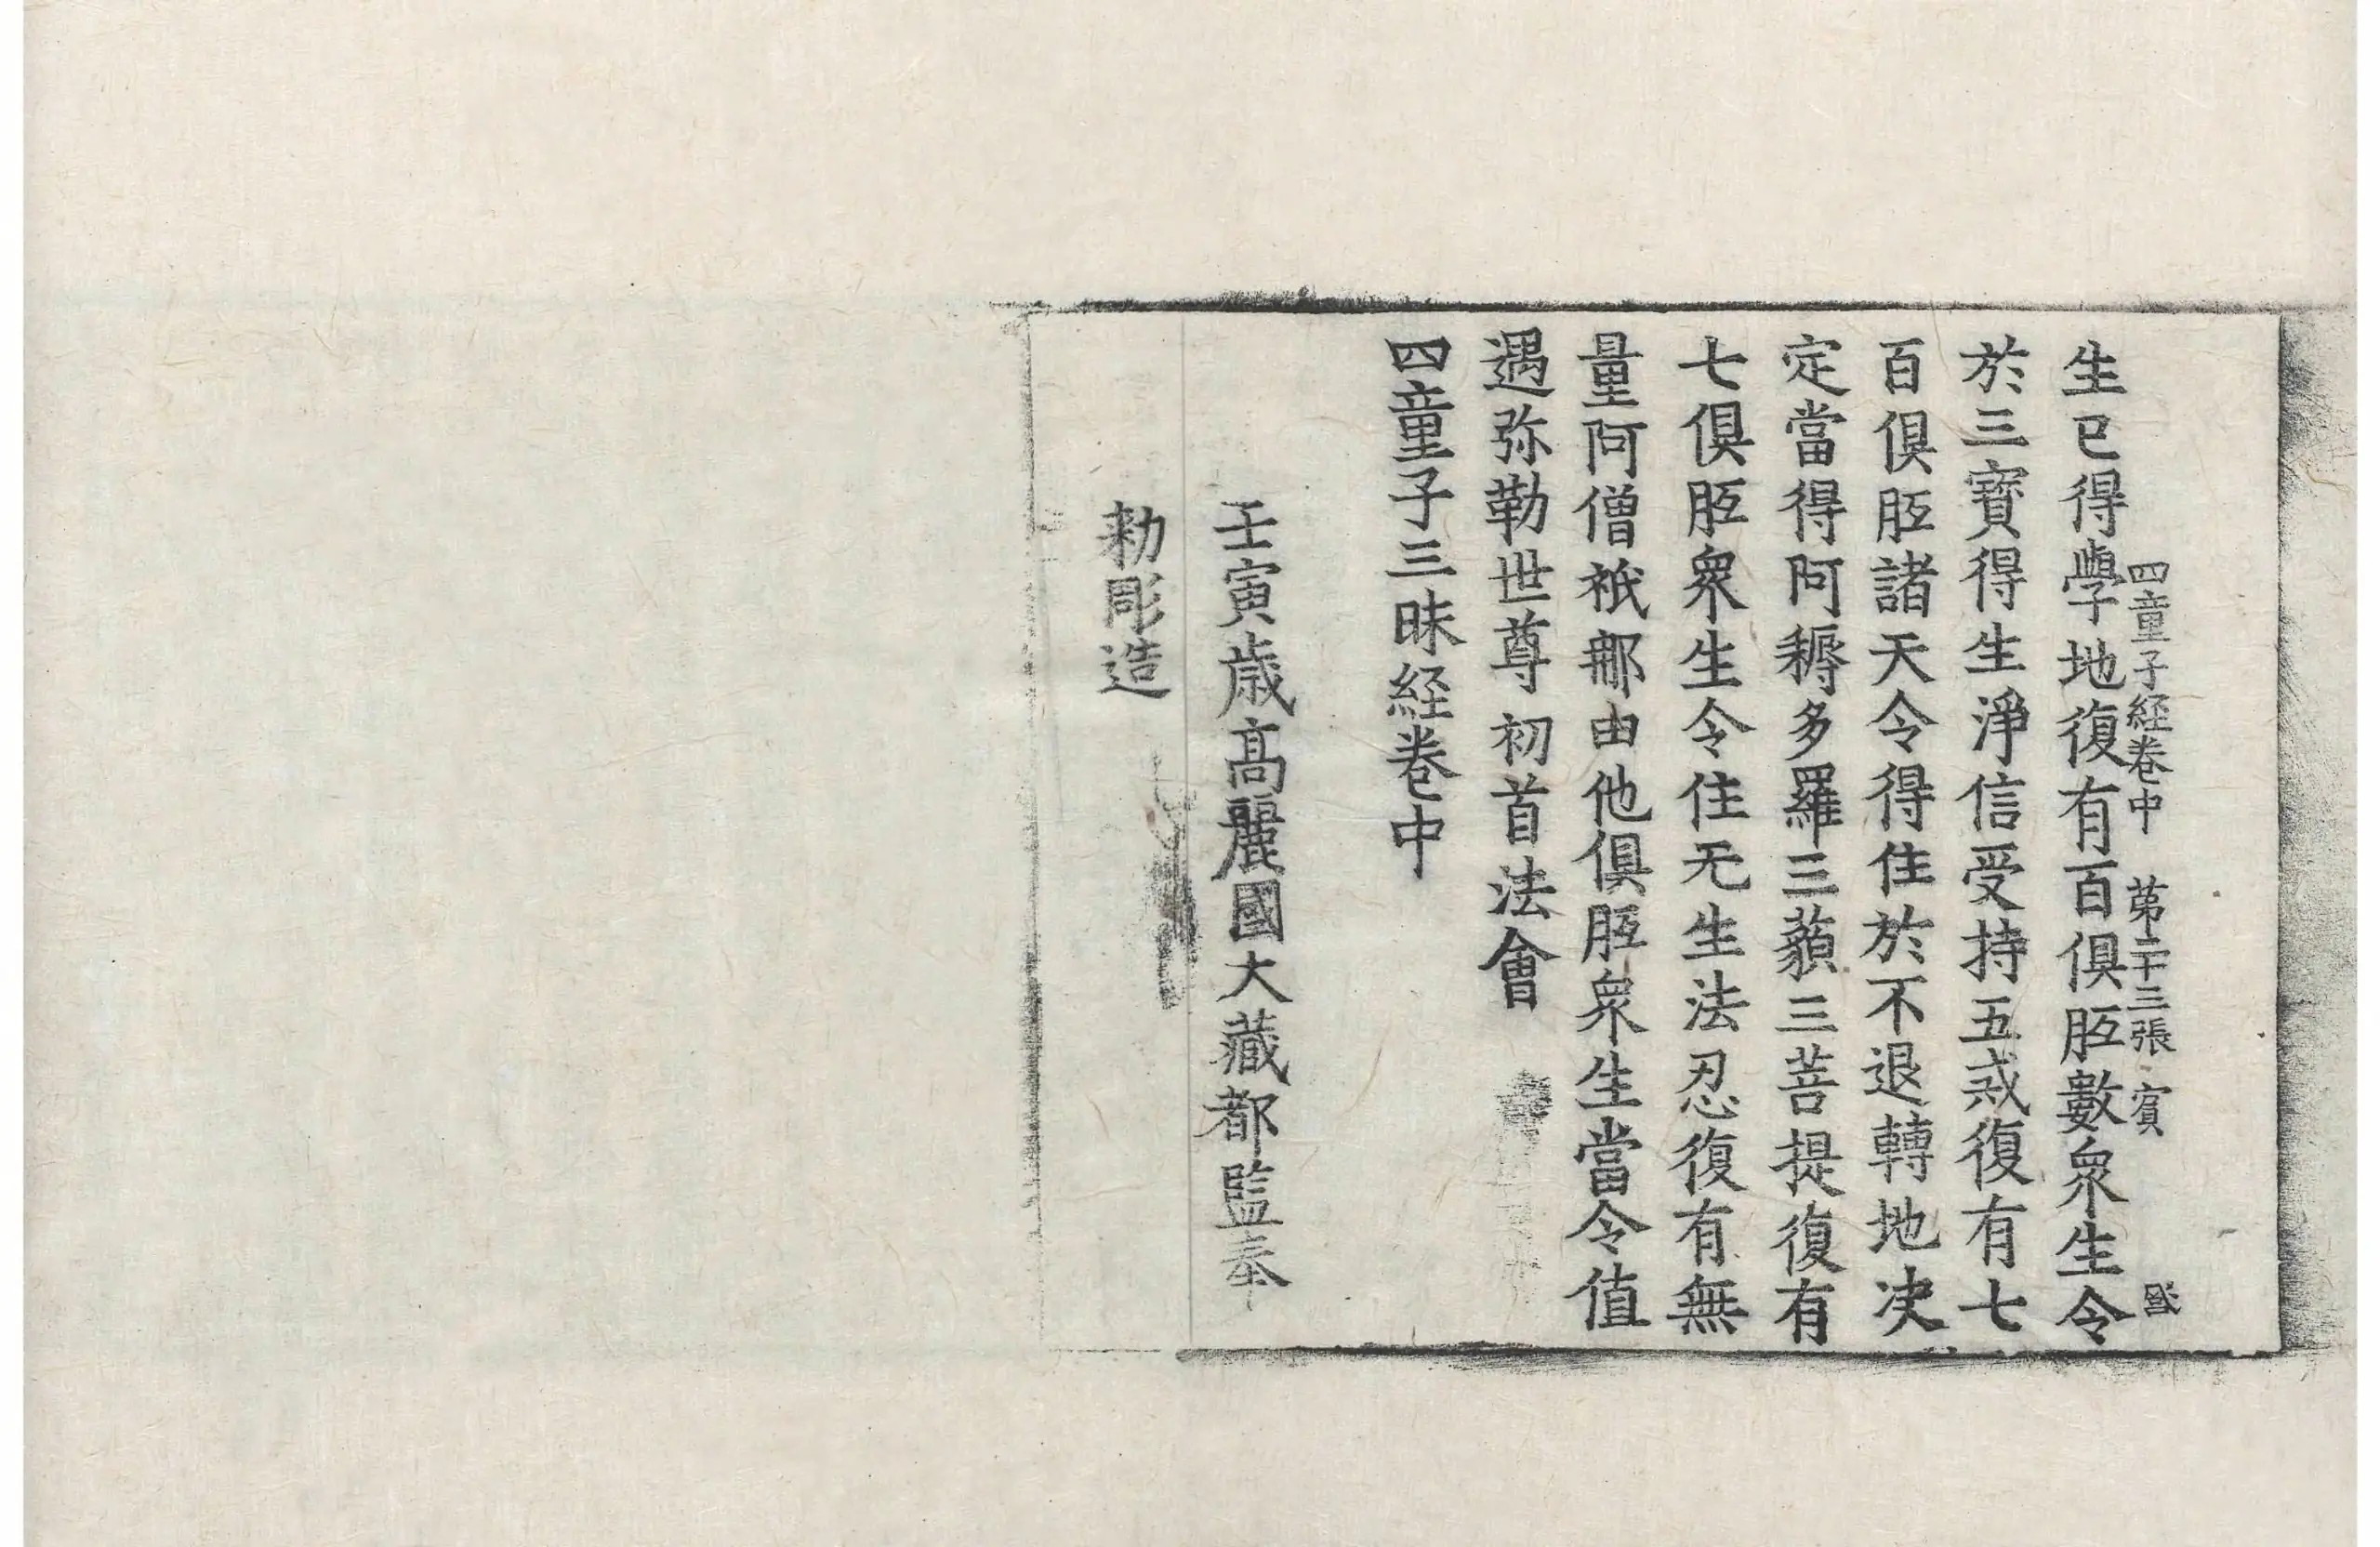 四童子経卷中 第二十三張 賔
生已得學地復有百俱胝數衆生令
於三寶得生淨信受持五戒復有七
百俱胝諸天令得住於不退轉地决
定當得阿耨多羅三藐三菩提復有
七俱胝衆生令住无生法忍復有無
量阿僧祇那由他俱胝衆生當令值
遇弥勒世尊初首法會
四童子三昧経卷中
壬寅歳高麗國大藏都監奉
勑彫造